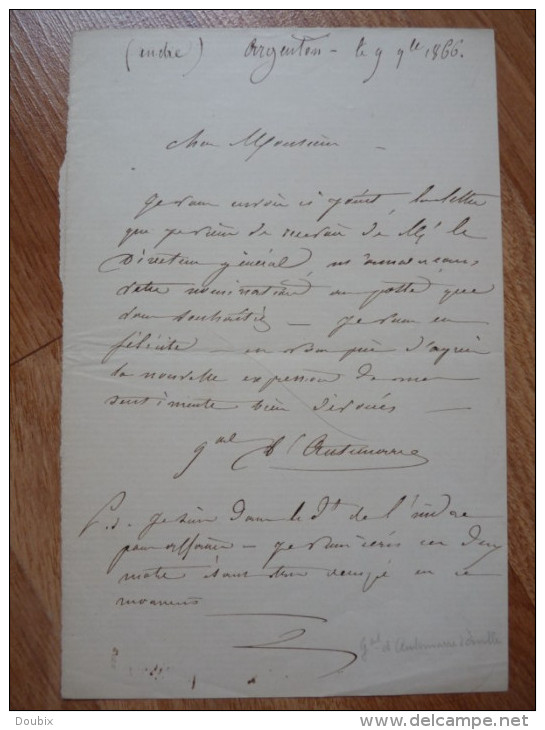 (indre) Argenton - le 9 9bre 1866.
Mon Monsieur
Je vous envoie ci joint la lettre
que je viens de recevoir de Mr le
Directeur général m'annonçant
votre nomination au poste que
vous souhaitiez - je vous en
félicite - en vous priant d'agréer
la nouvelle expression de mes
sentiments bien dévoués
gal d'Autemarre
P.S. Je suis dans le dt de l'indre
pour affaire - je vous écris ces deux
mots étant très occupé en ce
moment
gal d'Autemarre d'Erville
Doubix
www.delcampe.net